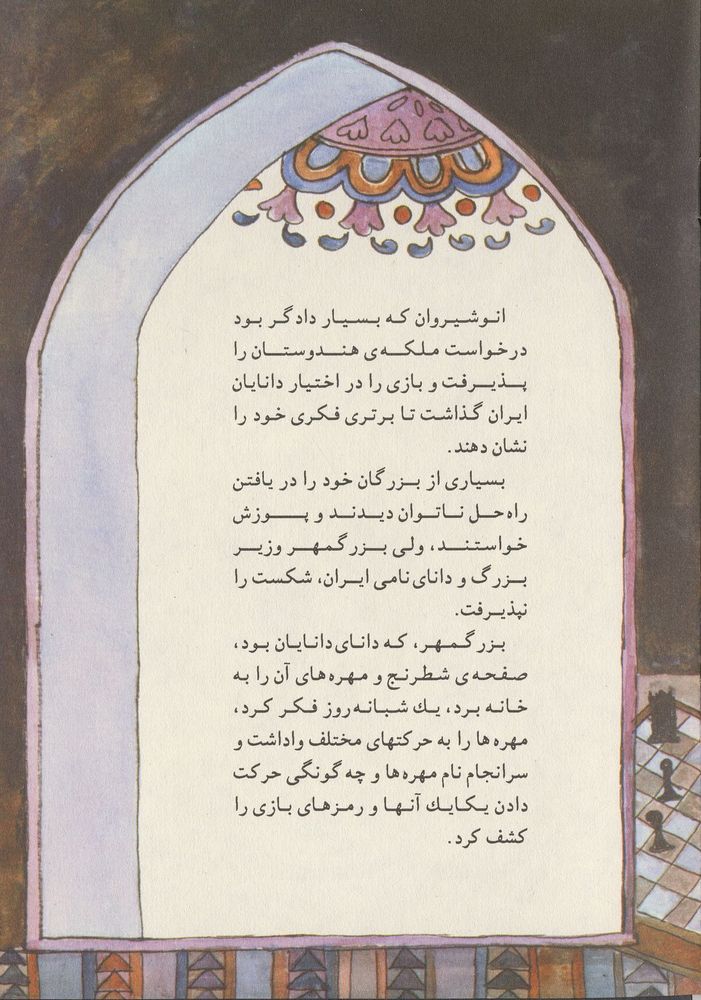 انوشیروان که بسیار دادگر بود
درخواست ملکه‌ی هندوستان را
پذیرفت و بازی را در اختیار دانایان
ایران گذاشت تا برتری فکری خود را
نشان دهند.
بسیاری از بزرگان خود را در یافتن
راه‌حل ناتوان دیدند و پوزش
خواستند، ولی بزرگمهر وزیر
بزرگ و دانای نامی ایران، شکست را
نپذیرفت.
بزرگمهر، که دانای دانایان بود،
صفحه‌ی شطرنج و مهره‌های آن را به
خانه برد، یك شبانه‌روز فکر کرد،
مهره‌ها را به حرکتهای مختلف واداشت و
سرانجام نام مهره‌ها و چه گونگی حرکت
دادن یکایك آنها و رمزهای بازی را
کشف کرد.